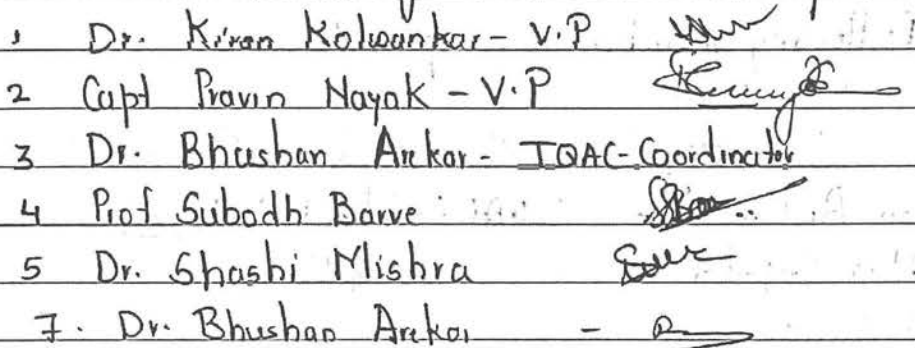 1 Dr. Kiran Kolwankar - V.P
2 Capt Pravin Nayak - V.P
3 Dr. Bhushan Arekar - IQAC-Coordinator
4 Prof Subodh Barve
5 Dr. Shashi Mishra
7. Dr. Bhushan Arekar -